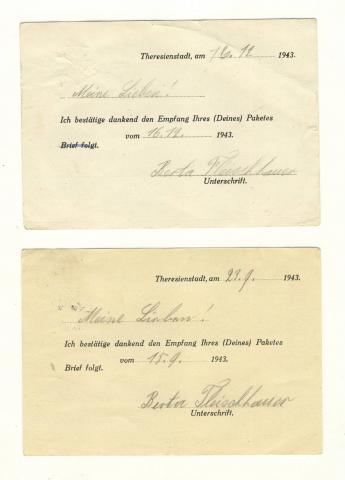 Theresienstadt, am 16.12 1943.
Meine Lieben!
Ich bestätige dankend den Empfang Ihres (Deines) Paketes
vom 16.12. 1943.
Brief folgt.
Berta Fleischhauer
Unterschrift.
Theresienstadt, am 22.9. 1943.
Meine Lieben!
Ich bestätige dankend den Empfang Ihres (Deines) Paketes
vom 15.9. 1943.
Brief folgt.
Berta Fleischhauer
Unterschrift.